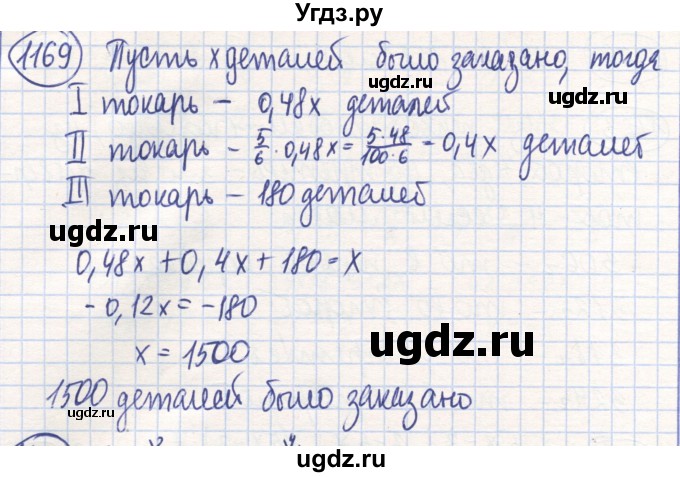 Угдз.ру
1169 Пусть x деталей было заказано, тогда
I токарь – 0,48x деталей
II токарь – 5/6 · 0,48x = 5·48/100·6 = 0,4x деталей
III токарь – 180 деталей
ugdz.ru
ugdz.ru
0,48x + 0,4x + 180 = x
- 0,12x = -180
ugdz.ru
x = 1500
1500 деталей было заказано
ugdz.ru
ugdz.ru